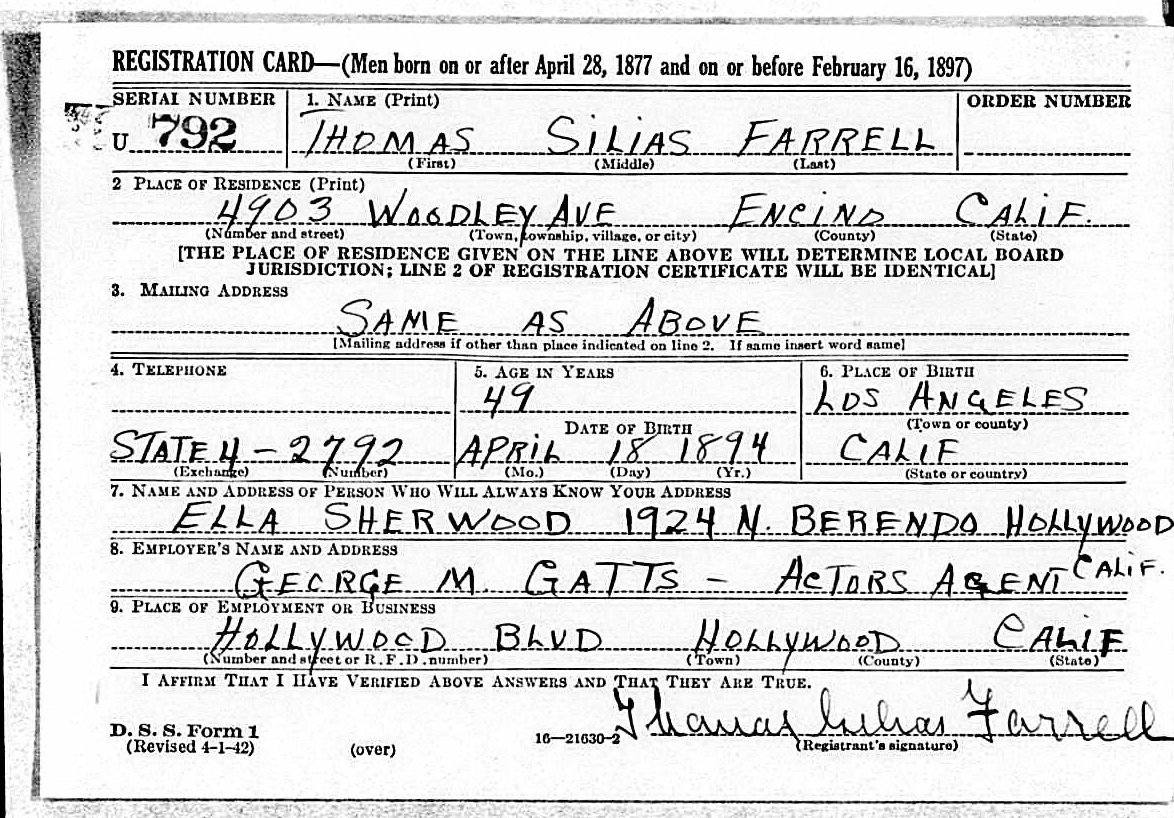 REGISTRATION CARD—(Men born on or after April 28, 1877 and on or before February 16, 1897)
SERIAL NUMBER 1. NAME (Print) ORDER NUMBER
U 792 THOMAS SILIAS FARRELL
(First) (Middle) (Last)
2 PLACE OF RESIDENCE (Print)
4903 WOODLEY AVE ENCINO CALIF.
(Number and street) (Town, township, village, or city) (County) (State)
[THE PLACE OF RESIDENCE GIVEN ON THE LINE ABOVE WILL DETERMINE LOCAL BOARD
JURISDICTION; LINE 2 OF REGISTRATION CERTIFICATE WILL BE IDENTICAL]
3. MAILING ADDRESS
SAME AS ABOVE
[Mailing address if other than place indicated on line 2. If same insert word same]
4. TELEPHONE 5. AGE IN YEARS 6. PLACE OF BIRTH
49 LOS ANGELES
DATE OF BIRTH (Town or county)
STATE 4-2792 APRIL 18 1894 CALIF
(Exchange) (Number) (Mo.) (Day) (Yr.) (State or country)
7. NAME AND ADDRESS OF PERSON WHO WILL ALWAYS KNOW YOUR ADDRESS
ELLA SHERWOOD 1924 N. BERENDO HOLLYWOOD
8. EMPLOYER'S NAME AND ADDRESS
GEORGE M. GATTS - ACTORS AGENT CALIF.
9. PLACE OF EMPLOYMENT OR BUSINESS
HOLLYWOOD BLVD HOLLYWOOD CALIF
(Number and street or R. F. D. number) (Town) (County) (State)
I AFFIRM THAT I HAVE VERIFIED ABOVE ANSWERS AND THAT THEY ARE TRUE.
Thomas Silias Farrell
D. S. S. Form 1
(Revised 4-1-42) (over) 16—21630-2 (Registrant's signature)